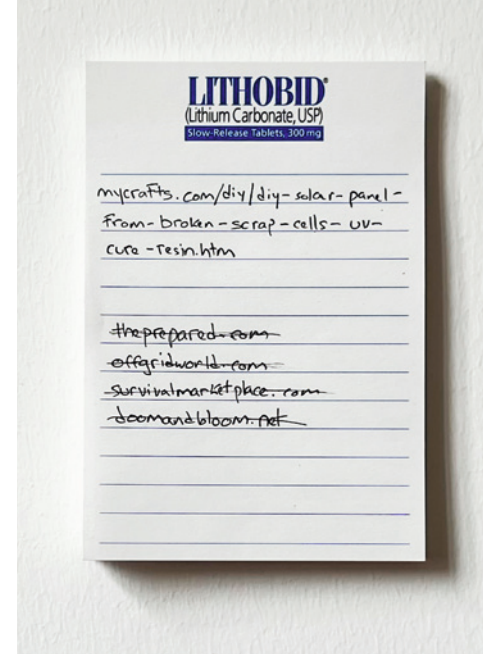 LITHOBID®
(Lithium Carbonate, USP)
Slow-Release Tablets, 300 mg
mycrafts.com/diy/diy-solar-panel-
from-broken-scrap-cells-uv-
cure-resin.htm
theprepared.com
offgridworld.com
survivalmarketplace.com
doomandbloom.net